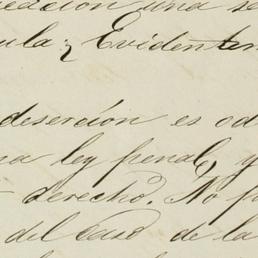 una se
ula; Eviden
deserción es od
na ley penal, y
derecho. No p
del caso de la